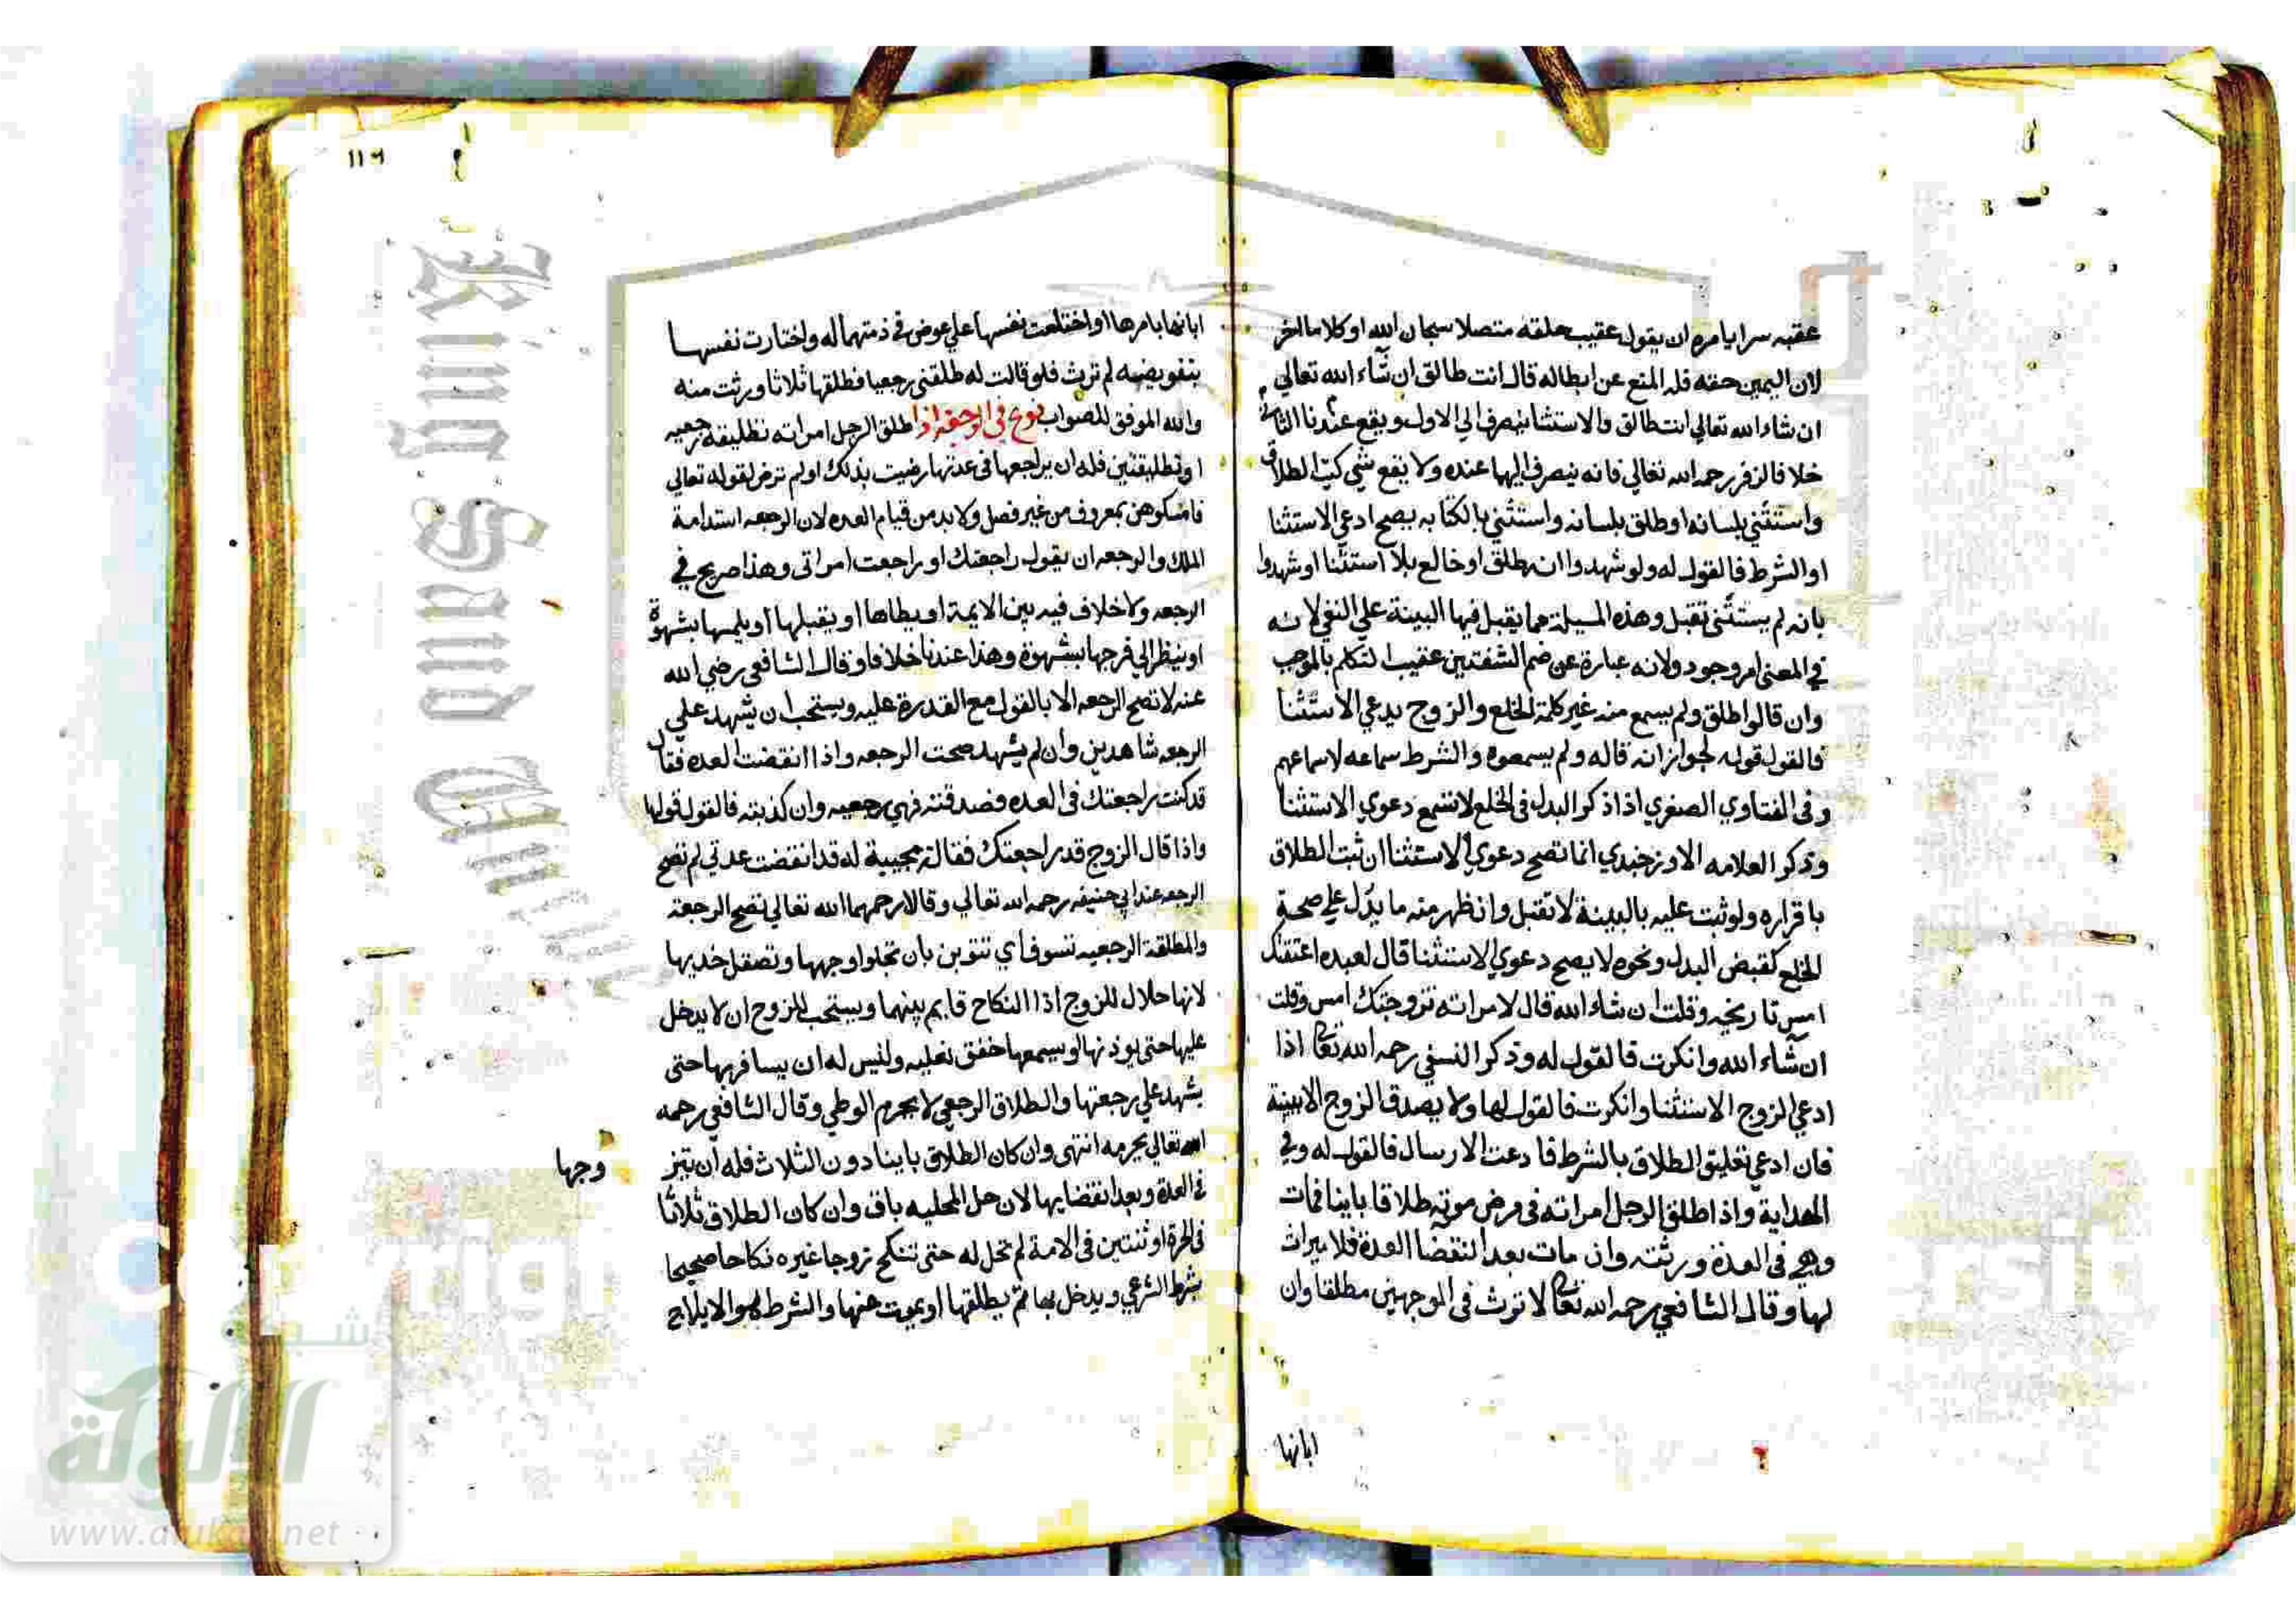 عقبه سرا يامره ان يقول عقيب حلقه متصلا سبحان الله او كلاما اخر
لان اليمين حقه فله المنع عن ابطاله قال انت طالق ان شاء الله تعالي
ان شاء الله تعالي انت طالق والاستثنا ينصرف الي الاول ويقع عندنا الثاني
خلافا لزفر رحمه الله تعالي فانه ينصرف اليها عنده ولا يقع شي كتب الطلاق
واستثني بلسانه او طلق بلسانه واستثني بالكتابه يصح ادعي الاستثنا
او الشرط فالقول له ولو شهدوا انه طلق او خالع بلا استثنا او شهدوا
بانه لم يستثني تقبل وهذه المسيلة مما يقبل فيها البينة علي النفي لانه
في المعني امر وجود ولانه عبارة عن ضم الشفتين عقيب التكلم بالموجب
وان قالوا طلق ولم يسمع منه غير كلمة الخلع والزوج يدعي الاستثنا
فالقول قوله لجواز انه قاله ولم يسمعوه والشرط سماعه لا سماعهم
وفي الفتاوي الصغري اذا ذكر البدل في الخلع لا تسمع دعوي الاستثنا
وذكر العلامه الاوزجندي انما تصح دعوي الاستثنا ان ثبت الطلاق
باقراره ولو ثبت عليه بالبينة لا تقبل وان ظهر منه ما يدل علي صحة
الخلع كقبض البدل ونحوه لا يصح دعوي الاستثنا قال لعبده اعتقتك
امس تاريخه وقلت ان شاء الله قال لامراته تزوجتك امس وقلت
ان شاء الله وانكرت فالقول له وذكر النسفي رحمه الله تعالى اذا
ادعي الزوج الاستثنا وانكرت فالقول لها ولا يصدق الزوج الا ببينة
فان ادعي تعليق الطلاق بالشرط فادعت الارسال فالقول له وفي
الهداية واذا طلق الرجل امراته في مرض موته طلاقا باينا فمات
وهي في العدة ورثته وان مات بعد انقضا العدة فلا ميراث
لها وقال الشافعي رحمه الله تعالى لا ترث في الوجهين مطلقا وان
ابانها
119
ابانها بامرها او اختلعت نفسها علي عوض في ذمتها له واختارت نفسها
بتفويضه لم ترث فلو قالت له طلقني رجعيا فطلقها ثلاثا ورثت منه
والله الموفق للصواب نوع في الرجعة اذا طلق الرجل امراته تطليقة رجعيه
او تطليقتين فله ان يراجعها في عدتها رضيت بذلك او لم ترض لقوله تعالي
فامسكوهن بمعروف من غير فصل ولا بد من قيام العده لان الرجعه استدامة
الملك والرجعه ان يقول راجعتك او راجعت امراتي وهذا صريح في
الرجعه ولا خلاف فيه بين الايمة او يطاها او يقبلها او يلمسها بشهوة
او ينظر الي فرجها بشهوة وهذا عندنا خلافا وقال الشافعي رضي الله
عنه لا تصح الرجعه الا بالقول مع القدرة عليه ويستحب ان يشهد علي
الرجعه شاهدين وان لم يشهد صحت الرجعه واذا انقضت العده فقال
قد كنت راجعتك في العده فصدقته فهي رجعيه وان كذبته فالقول قولها
واذا قال الزوج قد راجعتك فقالت مجيبة له قد انقضت عدتي لم تصح
الرجعه عند ابي حنيفه رحمه الله تعالي وقالا رحمهما الله تعالي تصح الرجعة
والمطلقة الرجعيه تتسوف اي تتزين بان تجلوا وجهها وتصقل خديها
لانها حلال للزوج اذا النكاح قايم بينهما ويستحب للزوج ان لا يدخل
عليها حتى يوذنها او يسمعها خفق نعليه وليس له ان يسافر بها حتى
يشهد علي رجعتها والطلاق الرجعي لا يحرم الوطي وقال الشافعي رحمه
الله تعالي يحرمه انتهى وان كان الطلاق باينا دون الثلاث فله ان يتز
وجها
في العدة وبعد انقضايها لان حل المحليه باق وان كان الطلاق ثلاثا
في الحرة او ثنتين في الامة لم تحل له حتى تنكح زوجا غيره نكاحا صحيحا
بشرط الشرعي ويدخل بها ثم يطلقها او يموت عنها والشرط هو الايلاج
King Saud
شبكة
الألوكة
www.alukah.net